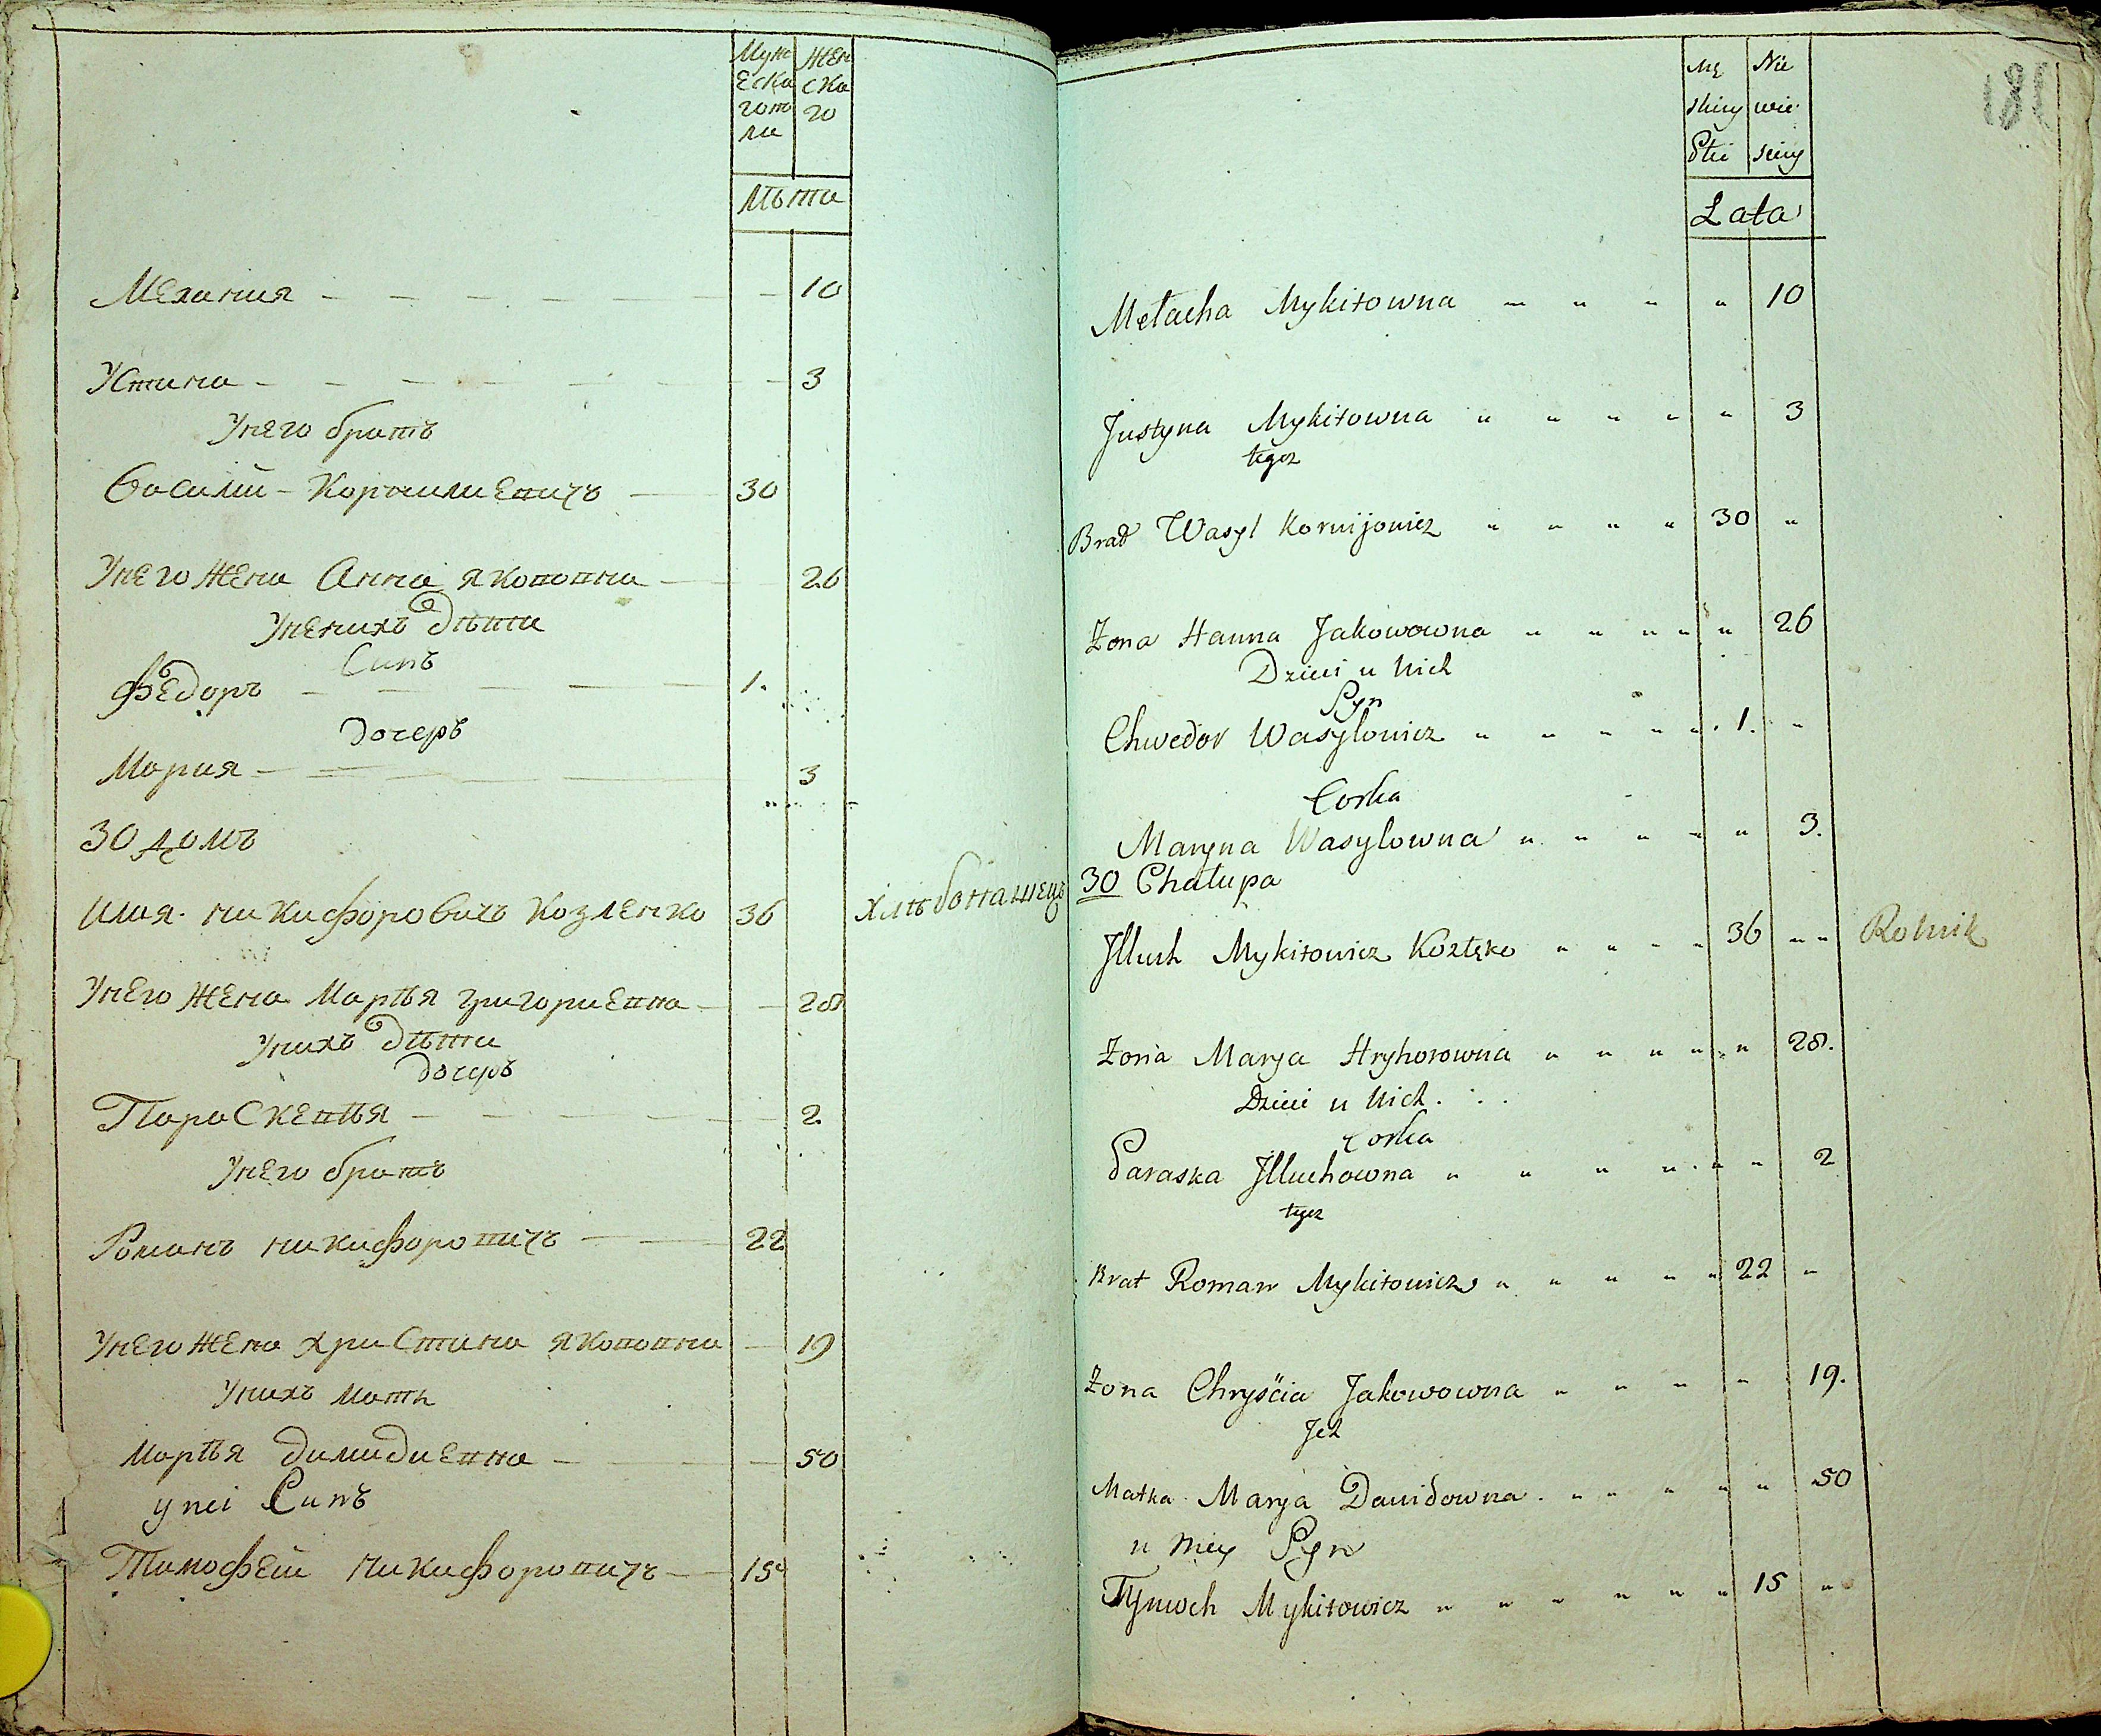 Муж Жен
еска ска
гопо го
ла
Лѣта
Мелания 10
Устина 3
У него братъ
Василий Корнилиевичъ 30
У него жена Анна Якововна 26
У нених дѣти
Синъ
Федоръ 1.
дочеръ
Мария 3
30 домъ
Илия Никифоровичъ Козленко 36 хлѣбопашецъ
У него жена Марѣя Григориевна 28
У нихъ дѣти
дочеръ
Параскевѣя 2
У него братъ
Романъ Никифоровичъ 22
У него жена Христина Якововна 19
У нихъ мать
Марѣя Димидиевна 50
у неі Синъ
Тимофей Никифоровичъ 15
Mę Nie
skiey wie
Płci sciey
Lata
Mełacha Mykitowna 10
Justyna Mykitowna 3
tegoz
Brat Wasyl Kornijowicz 30
Zona Hanna Jakowowna 26
Dzieci u nich
Syn
Chwedor Wasylowicz 1.
Corka
Maryna Wasylowna 3.
30 Chałupa
Jlluch Mykitowicz Kozłęko 36 Rolnik
Zona Marja Hryhorowna 28.
Dzieci u nich
Corka
Paraska Jlluchowna 2
tegoz
Brat Roman Mykitowicz 22
Zona Chryścia Jakowowna 19.
Jch
Matka Marja Dawidowna 50
u niey Syn
Tymoch Mykitowicz 15